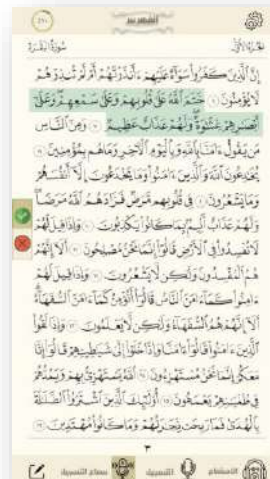 الجزء الأول
سورة البقرة
إِنَّ ٱلَّذِينَ كَفَرُوا۟ سَوَآءٌ عَلَيْهِمْ ءَأَنذَرْتَهُمْ أَمْ لَمْ تُنذِرْهُمْ
لَا يُؤْمِنُونَ ۝٦ خَتَمَ ٱللَّهُ عَلَىٰ قُلُوبِهِمْ وَعَلَىٰ سَمْعِهِمْ ۖ وَعَلَىٰٓ
أَبْصَـٰرِهِمْ غِشَـٰوَةٌ ۖ وَلَهُمْ عَذَابٌ عَظِيمٌ ۝٧ وَمِنَ ٱلنَّاسِ
مَن يَقُولُ ءَامَنَّا بِٱللَّهِ وَبِٱلْيَوْمِ ٱلْـَٔاخِرِ وَمَا هُم بِمُؤْمِنِينَ ۝٨
يُخَـٰدِعُونَ ٱللَّهَ وَٱلَّذِينَ ءَامَنُوا۟ وَمَا يَخْدَعُونَ إِلَّآ أَنفُسَهُمْ
وَمَا يَشْعُرُونَ ۝٩ فِى قُلُوبِهِم مَّرَضٌ فَزَادَهُمُ ٱللَّهُ مَرَضًا ۖ
وَلَهُمْ عَذَابٌ أَلِيمٌۢ بِمَا كَانُوا۟ يَكْذِبُونَ ۝١٠ وَإِذَا قِيلَ لَهُمْ
لَا تُفْسِدُوا۟ فِى ٱلْأَرْضِ قَالُوٓا۟ إِنَّمَا نَحْنُ مُصْلِحُونَ ۝١١ أَلَآ إِنَّهُمْ
هُمُ ٱلْمُفْسِدُونَ وَلَـٰكِن لَّا يَشْعُرُونَ ۝١٢ وَإِذَا قِيلَ لَهُمْ
ءَامِنُوا۟ كَمَآ ءَامَنَ ٱلنَّاسُ قَالُوٓا۟ أَنُؤْمِنُ كَمَآ ءَامَنَ ٱلسُّفَهَآءُ ۗ
أَلَآ إِنَّهُمْ هُمُ ٱلسُّفَهَآءُ وَلَـٰكِن لَّا يَعْلَمُونَ ۝١٣ وَإِذَا لَقُوا۟
ٱلَّذِينَ ءَامَنُوا۟ قَالُوٓا۟ ءَامَنَّا وَإِذَا خَلَوْا۟ إِلَىٰ شَيَـٰطِينِهِمْ قَالُوٓا۟ إِنَّا
مَعَكُمْ إِنَّمَا نَحْنُ مُسْتَهْزِءُونَ ۝١٤ ٱللَّهُ يَسْتَهْزِئُ بِهِمْ وَيَمُدُّهُمْ
فِى طُغْيَـٰنِهِمْ يَعْمَهُونَ ۝١٥ أُو۟لَـٰٓئِكَ ٱلَّذِينَ ٱشْتَرَوُا۟ ٱلضَّلَـٰلَةَ
بِٱلْهُدَىٰ فَمَا رَبِحَت تِّجَـٰرَتُهُمْ وَمَا كَانُوا۟ مُهْتَدِينَ ۝١٦
٣